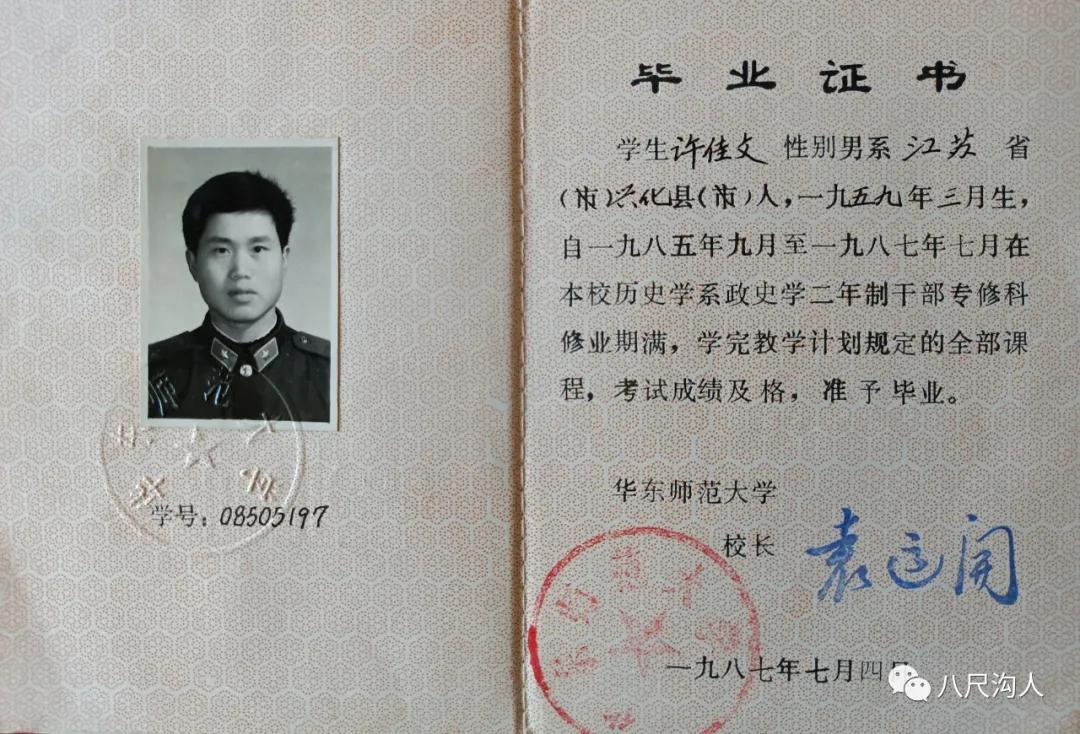 学号：08505197
毕业证书
学生许佳文 性别男系江苏省
（市）兴化县（市）人，一九五九年三月生，
自一九八五年九月至一九八七年七月在
本校历史学系政史学二年制干部专修科
修业期满，学完教学计划规定的全部课
程，考试成绩及格，准予毕业。
华东师范大学
校长 袁运开
一九八七年七月四日
八尺沟人